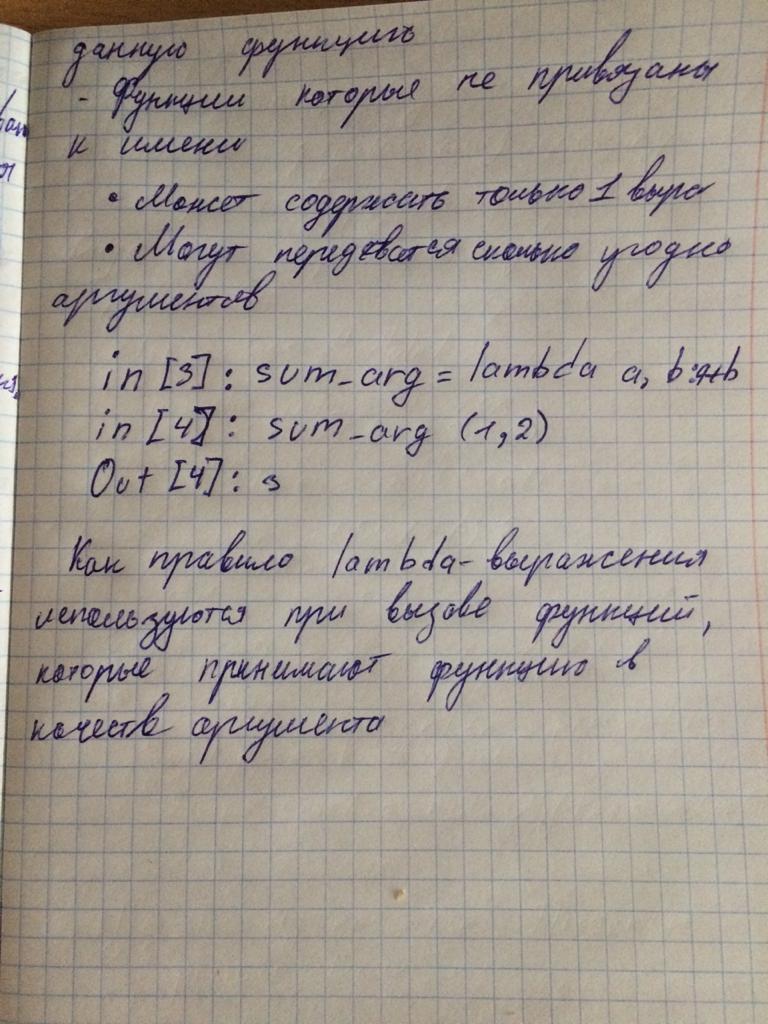 данную функцить
- Функции которые не привязаны
к имени
• Может содержать только 1 выра
• Могут передаватся сколько угодно
аргументов
in [3]: sum_arg = lambda a, b:a+b
in [4]: sum_arg (1,2)
Out [4]: 3
Как правило lambda-выражения
используются при вызове функций,
которые принимают функцию в
качеств аргумента